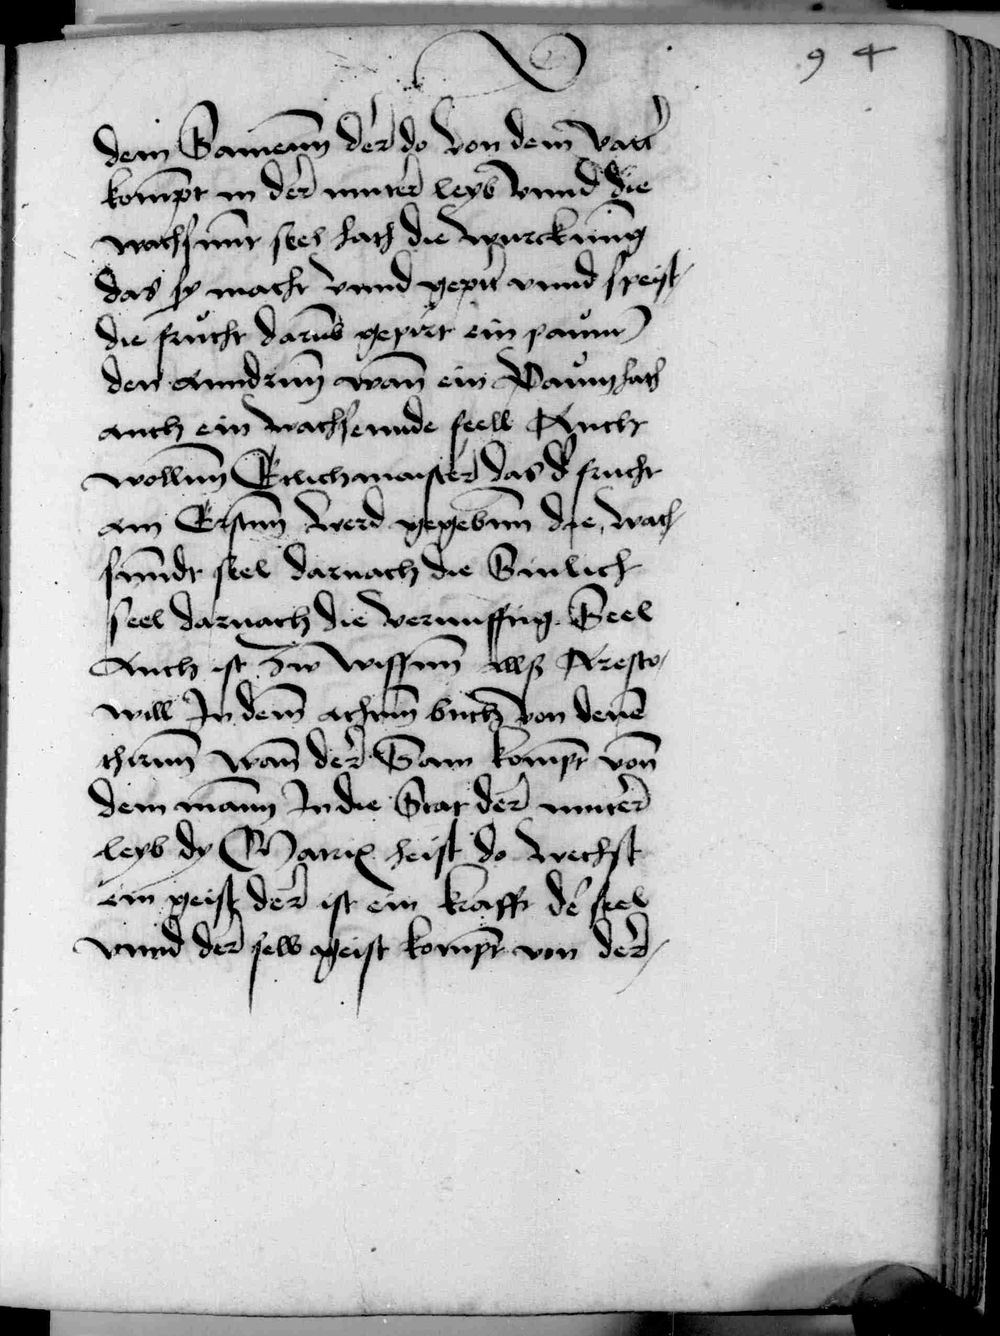 94
dem Samenn der do von dem Vatter
kompt in der muter leyb Vnnd die
wachssunt seel hath die wurckung
das sy macht vnnd gepirt vnnd speist
die frucht darumb gepirt ein paum
den anndrnn wan ein Paum hath
auch ein wachsennde seell Auch
wollenn Etlich maister das d frucht
am Erstenn werd gegebenn die wach
sundt seel darnach die Sinlich
seel darnach die vernufftig Seel
Auch ist zw wissenn alls Aresto
will In dem achten buch von denen
thirnn wan der Sam kompt von
dem mann In die Stat der muter
leyb dy Matrix heist do wechst
ein geist der ist ein krafft der seel
vnnd der selb geist kompt von der